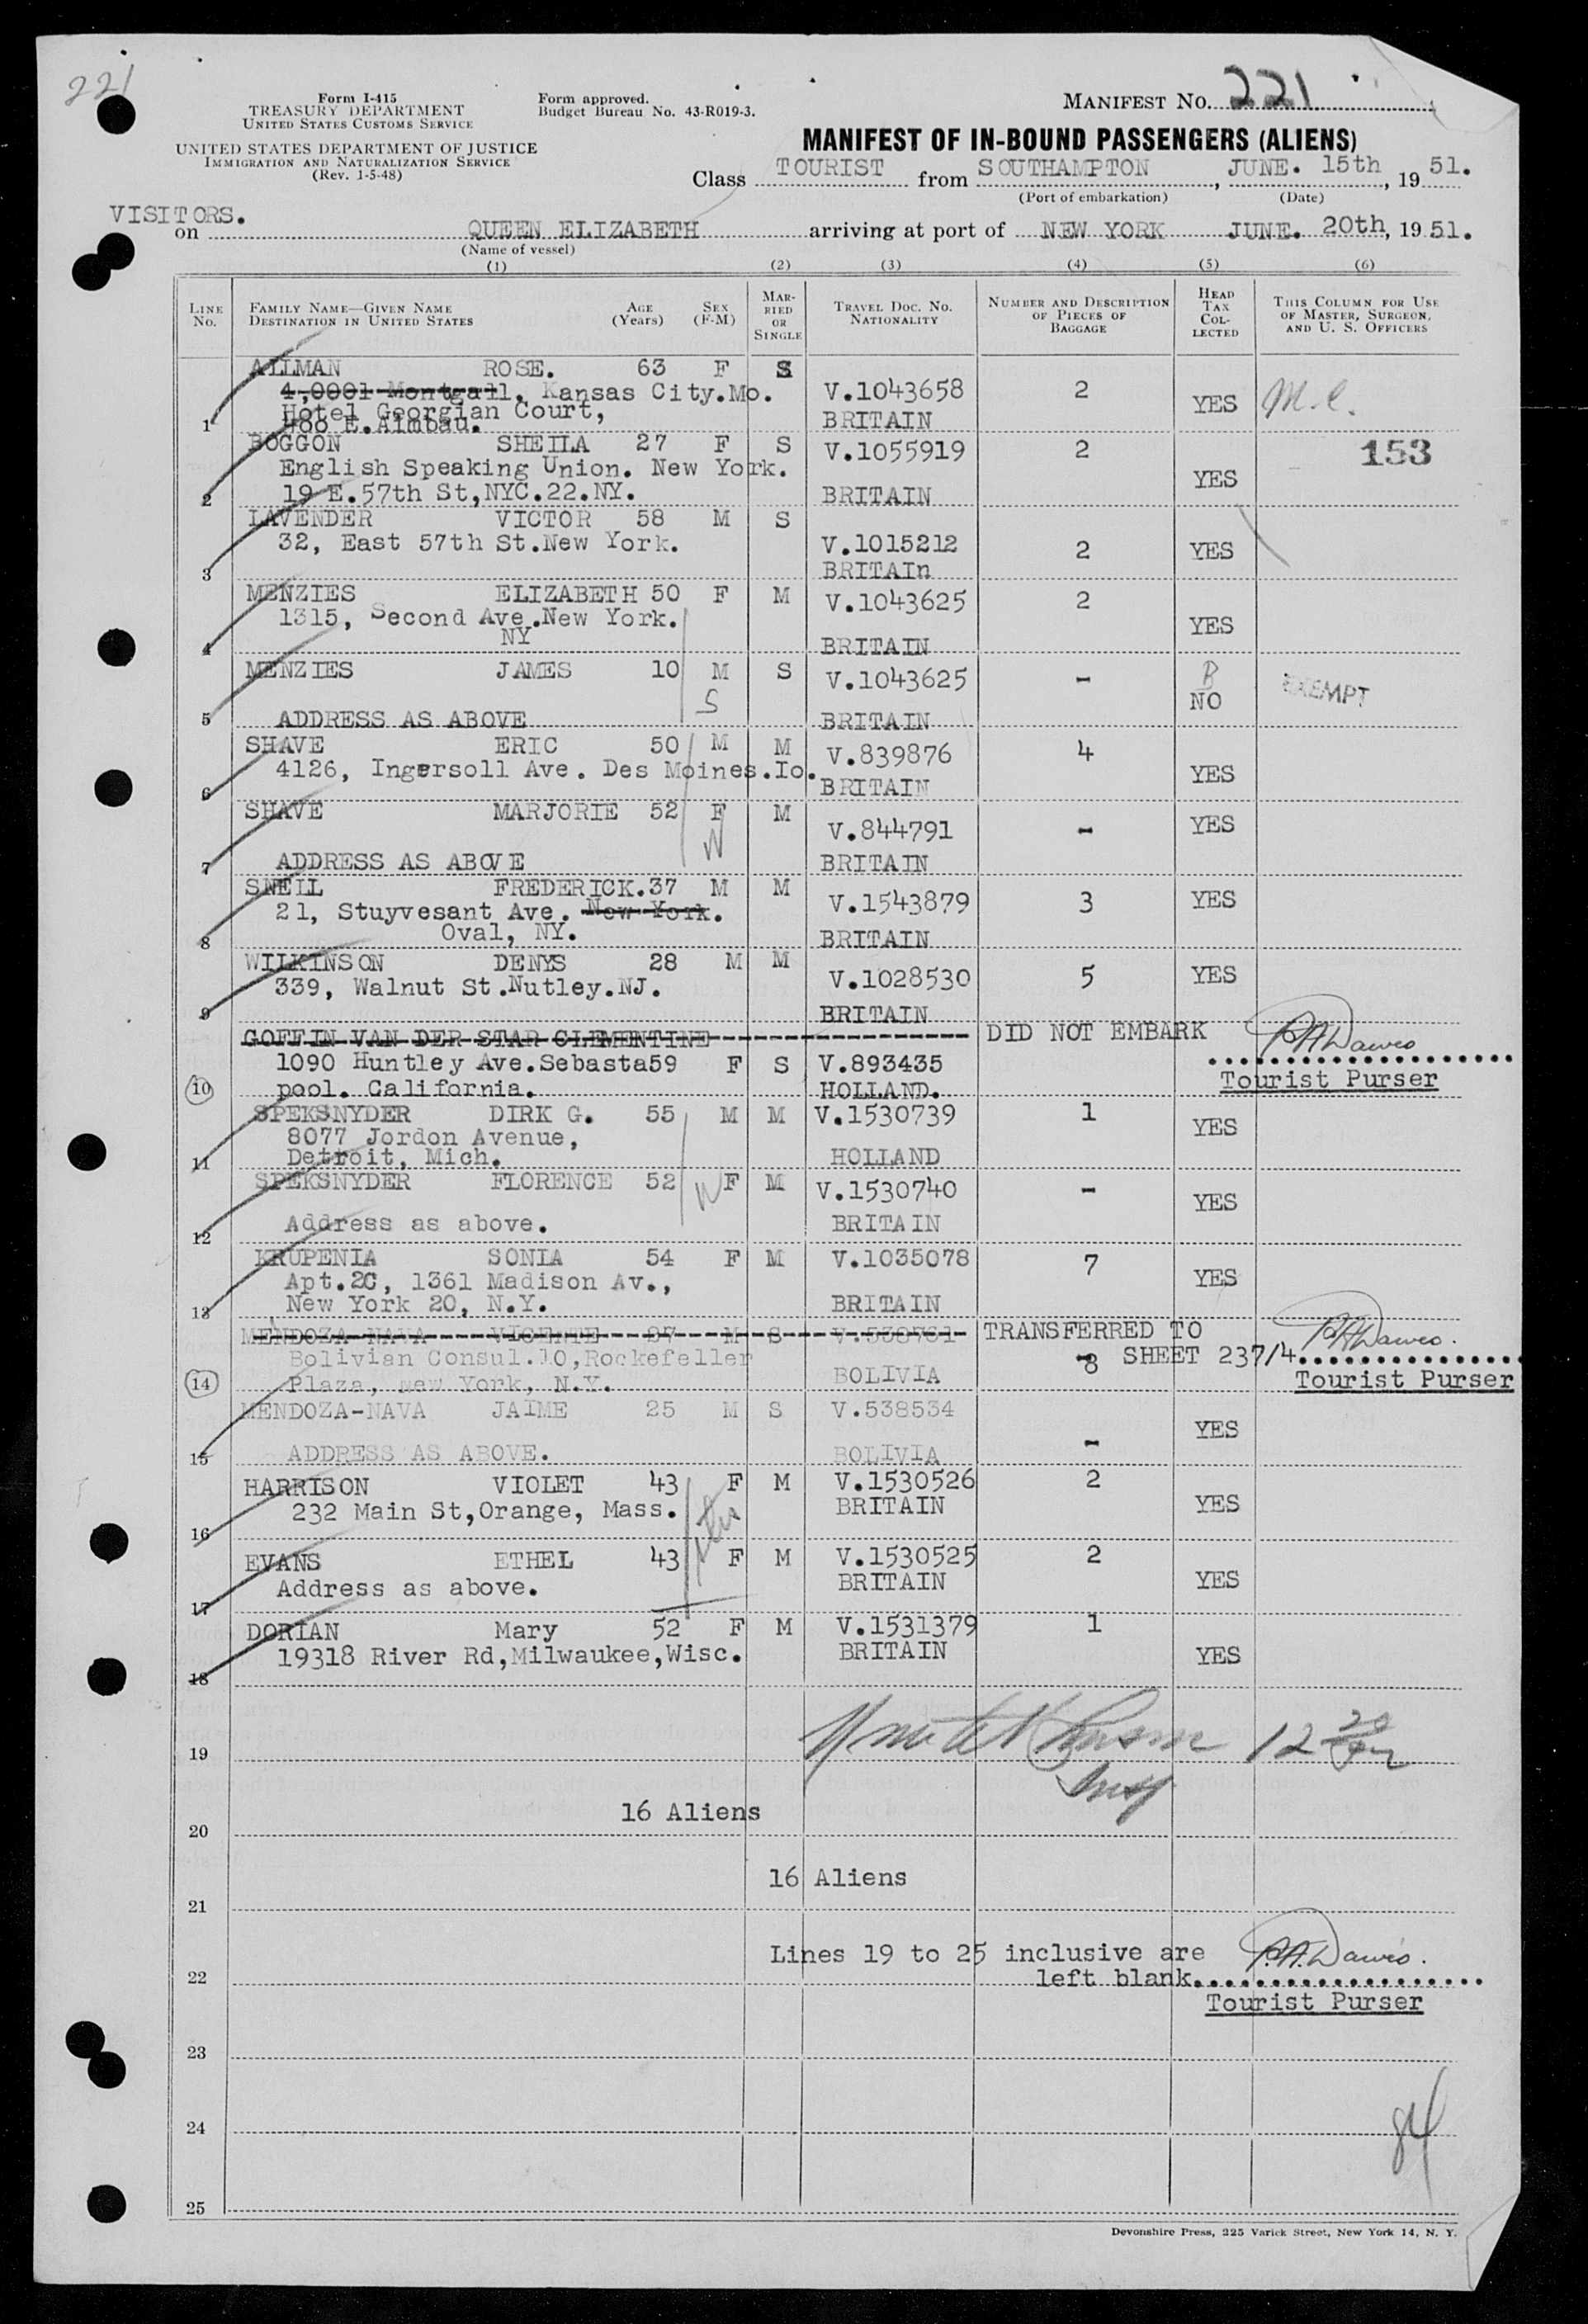 221
Form I-415
TREASURY DEPARTMENT
UNITED STATES CUSTOMS SERVICE
UNITED STATES DEPARTMENT OF JUSTICE
IMMIGRATION AND NATURALIZATION SERVICE
(Rev. 1-5-48)
Form approved.
Budget Bureau No. 43-R019-3.
MANIFEST NO. 221
MANIFEST OF IN-BOUND PASSENGERS (ALIENS)
Class TOURIST from SOUTHAMPTON, JUNE. 15th, 19 51.
(Port of embarkation) (Date)
VISITORS.
on QUEEN ELIZABETH arriving at port of NEW YORK JUNE. 20th, 19 51.
(Name of vessel)
(1) (2) (3) (4) (5) (6)
LINE No. FAMILY NAME—GIVEN NAME DESTINATION IN UNITED STATES AGE (Years) SEX (F-M) MARRIED OR SINGLE TRAVEL DOC. NO. NATIONALITY NUMBER AND DESCRIPTION OF PIECES OF BAGGAGE HEAD TAX COLLECTED THIS COLUMN FOR USE OF MASTER, SURGEON, AND U. S. OFFICERS
ALLMAN ROSE. 63 F S
4,0001 Montgall, Kansas City.Mo. V.1043658 2
Hotel Georgian Court, YES M.C.
1 400 E.Almbau. BRITAIN
BOGGON SHEILA 27 F S V.1055919 2 153
English Speaking Union. New York. YES
2 19 E.57th St,NYC.22.NY. BRITAIN
LAVENDER VICTOR 58 M S
32, East 57th St.New York. V.1015212 2 YES
3 BRITAIn
MENZIES ELIZABETH 50 F M V.1043625 2
1315, Second Ave.New York. YES
4 NY BRITAIN
MENZIES JAMES 10 M S V.1043625 - B EXEMPT
S NO
5 ADDRESS AS ABOVE BRITAIN
SHAVE ERIC 50 M M V.839876 4
4126, Ingersoll Ave. Des Moines.Io. YES
6 BRITAIN
SHAVE MARJORIE 52 F M V.844791 - YES
W
7 ADDRESS AS ABOVE BRITAIN
SNELL FREDERICK.37 M M V.1543879 3 YES
21, Stuyvesant Ave. New York.
8 Oval, NY. BRITAIN
WILKINSON DENYS 28 M M V.1028530 5 YES
339, Walnut St.Nutley.NJ.
9 BRITAIN
GOFFIN VAN DER STAR CLEMENTINE DID NOT EMBARK P.A.Dawes
1090 Huntley Ave.Sebasta59 F S V.893435
10 pool. California. HOLLAND. Tourist Purser
SPEKSNYDER DIRK G. 55 M M V.1530739 1
8077 Jordon Avenue, YES
11 Detroit, Mich. HOLLAND
SPEKSNYDER FLORENCE 52 W F M V.1530740 - YES
12 Address as above. BRITAIN
KRUPENIA SONIA 54 F M V.1035078 7
Apt.2C, 1361 Madison Av., YES
13 New York 20, N.Y. BRITAIN
MENDOZA-NAVA VICENTE 27 M S V.538761 TRANSFERRED TO P.A.Dawes.
Bolivian Consul.10,Rockefeller - 8 SHEET 237/4
14 Plaza, New York, N.Y. BOLIVIA Tourist Purser
MENDOZA-NAVA JAIME 25 M S V.538534
YES
15 ADDRESS AS ABOVE. BOLIVIA -
HARRISON VIOLET 43 F M V.1530526 2
232 Main St,Orange, Mass. BRITAIN YES
16
EVANS ETHEL 43 F M V.1530525 2
Address as above. BRITAIN YES
17
DORIAN Mary 52 F M V.1531379 1
19318 River Rd,Milwaukee,Wisc. BRITAIN YES
18
19 12
Insp
16 Aliens
20
16 Aliens
21
Lines 19 to 25 inclusive are P.A.Dawes.
22 left blank.
Tourist Purser
23
24 84
25
Devonshire Press, 225 Varick Street, New York 14, N. Y.